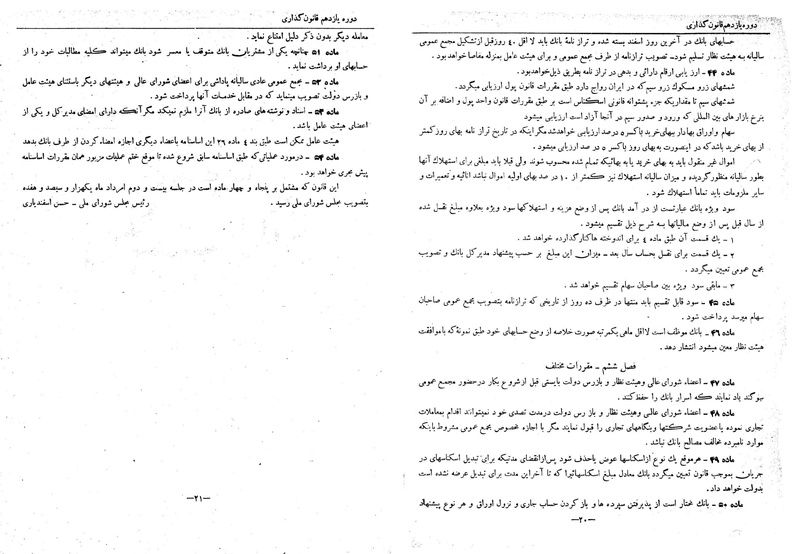 دوره یازدهم قانون‌گذاری
حسابهای بانك در آخرین روز اسفند بسته شده و تراز نامهٔ بانك باید لا اقل ۴۰ روز قبل از تشکیل مجمع عمومی
سالیانه به هیئت نظار تسلیم شود. تصویب ترازنامه از طرف مجمع عمومی و برای هیئت عامل بمنزله مفاصا خواهد بود.
ماده ۴۴ - ارز یابی ارقام دارائی و بدهی در تراز نامه بطریق ذیل خواهد بود.
شمشهای زر و مسکوك زر و سیم که در ایران رواج دارد طبق مقررات قانون پول ارزیابی میگردد.
شمشهای سیم تا مقداریکه جزء پشتوانه قانونی اسکناس است بر طبق مقررات قانون واحد پول و اضافه بر آن
بنرخ بازار های بین المللی که ورود و صدور سیم در آنجا آزاد است ارزیابی میشود
سهام و اوراق بهادار ببهای خرید با کسر ۵ درصد ارزیابی خواهد شد مگر اینکه در تاریخ تراز نامه بهای روز کمتر
از بهای خرید باشد که در اینصورت به بهای روز با کسر ۵ در صد ارزیابی میشود.
اموال غیر منقول باید به بهای خرید یا به بهائیکه تمام شده محسوب شوند ولی قبلا باید مبلغی برای استهلاك آنها
بطور سالیانه منظور گردیده و میزان سالیانه استهلاك نیز کمتر از ۱۰ در صد بهای اولیه اموال نباشد اثاثیه و تعمیرات و
سایر ملزومات باید تماماً استهلاك شود.
سود ویژه بانك عبارتست از در آمد بانك پس از وضع هزینه و استهلاکها سود ویژه بعلاوه مبلغ نقل شده
از سال قبل پس از وضع مالیاتها به شرح ذیل تقسیم میشود.
۱ - یك قسمت آن طبق ماده ٤ برای اندوخته ها کنار گذارده خواهد شد.
۲ - یك قسمت برای نقل بحساب سال بعد - میزان این مبلغ بر حسب پیشنهاد مدیر کل بانك و تصویب
مجمع عمومی تعیین میگردد
۳ - مابقی سود ویژه بین صاحبان سهام تقسیم خواهد شد.
ماده ۴۵ - سود قابل تقسیم باید منتها در ظرف ده روز از تاریخی که ترازنامه بتصویب مجمع عمومی صاحبان
سهام میرسد پرداخت شود.
ماده ۴۶ - بانك موظف است لااقل ماهی یکمرتبه صورت خلاصه از وضع حسابهای خود طبق نمونهٔ که با موافقت
هیئت نظار معین میشود انتشار دهد.
فصل ششم - مقررات مختلف
ماده ۴۷ - اعضاء شورای عالی و هیئت نظار و بازرس دولت بایستی قبل از شروع بکار در حضور مجمع عمومی
سوگند یاد نمایند که اسرار بانك را حفظ کنند.
ماده ۴۸ - اعضاء شورای عالی و هیئت نظار و باز رس دولت در مدت تصدی خود نمیتوانند اقدام بمعاملات
تجاری نموده یا عضویت شرکتها و بنگاههای تجاری را قبول نمایند مگر با اجازه مخصوص مجمع عمومی مشروط باینکه
موارد نامبرده مخالف مصالح بانك نباشد.
ماده ۴۹ - هر موقع یك نوع از اسکناسها عوض یا حذف شود پس از انقضای مدتیکه برای تبدیل اسکناسهای در
جریان بموجب قانون تعیین میگردد بانك معادل مبلغ اسکناسهائیرا که تا آخر این مدت برای تبدیل عرضه نشده است
بدولت خواهد داد.
ماده ۵۰ - بانك مختار است از پذیرفتن سپرده ها و باز کردن حساب جاری و نزول اوراق و هر نوع پیشنهاد
—۲۰—
دوره یازدهم قانون گذاری
معامله دیگر بدون ذکر دلیل امتناع نماید.
ماده ۵۱ چنانچه یکی از مشتریان بانك متوقف یا معسر شود بانك میتواند کلیه مطالبات خود را از
حسابهای او برداشت نماید.
ماده ۵۲ - مجمع عمومی عادی سالیانه پاداشی برای اعضای شورای عالی و هیئتهای دیگر باستثنای هیئت عامل
و بازرس دولت تصویب مینماید که در مقابل خدمات آنها پرداخت شود.
ماده ۵۳ - اسناد و نوشته های صادره از بانك آنرا ملزم نمیکند مگر آنکه دارای امضای مدیر کل و یکی از
اعضای هیئت عامل باشد.
هیئت عامل ممکن است طبق بند ٤ ماده ۲۶ این اساسنامه باعضاء دیگری اجازه امضاء کردن از طرف بانك بدهد
ماده ۵۴ - در مورد عملیاتی که طبق اساسنامه سابق شروع شده تا موقع ختم عملیات مزبور همان مقررات اساسنامه
پیش مجری خواهد بود.
این قانون که مشتمل بر پنجاه و چهار ماده است در جلسه بیست و دوم امرداد ماه یکهزار و سیصد و هفده
بتصویب مجلس شورای ملی رسید. رئیس مجلس شورای ملی - حسن اسفندیاری
—۲۱—